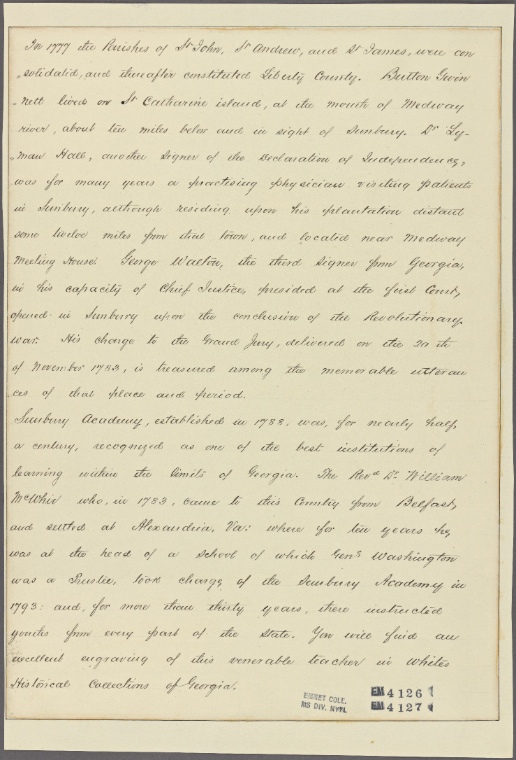 In 1777 the Parishes of St John, St Andrew, and St James, were con
solidated, and thereafter constituted Liberty County. Button Gwin
nett lived on St Catharine island, at the mouth of Medway
river, about ten miles below and in sight of Sunbury. Dr Ly-
man Hall, another Signer of the Declaration of Independence,
was for many years a practising physician visiting patients
in Sunbury, although residing upon his plantation distant
some twelve miles from that town, and located near Medway
Meeting House. George Walton, the third Signer from Georgia,
in his capacity of Chief Justice, presided at the first Court,
opened in Sunbury upon the conclusion of the Revolutionary
war. His charge to the Grand Jury, delivered on the
of November 1783, is treasured among the memorable utteran
ces of that place and period.
Sunbury Academy, established in 1788, was, for nearly half,
a century, recognized as one of the best institutions of
learning within the limits of Georgia. The Revd Dr William
McWhir who, in 1783, came to this Country from Belfast,
and settled at Alexandria, Va: where for ten years he,
was at the head of a School of which Genl Washington
was a Trustee, took charge of the Sunbury Academy in
1793: and, for more than thirty years, there instructed
youths from every part of the State. You will find an
excellent engraving of this venerable teacher in White's
Historical Collections of Georgia.
EMMET COLL.
MS DIV. NYPL
EM 4126
EM 4127